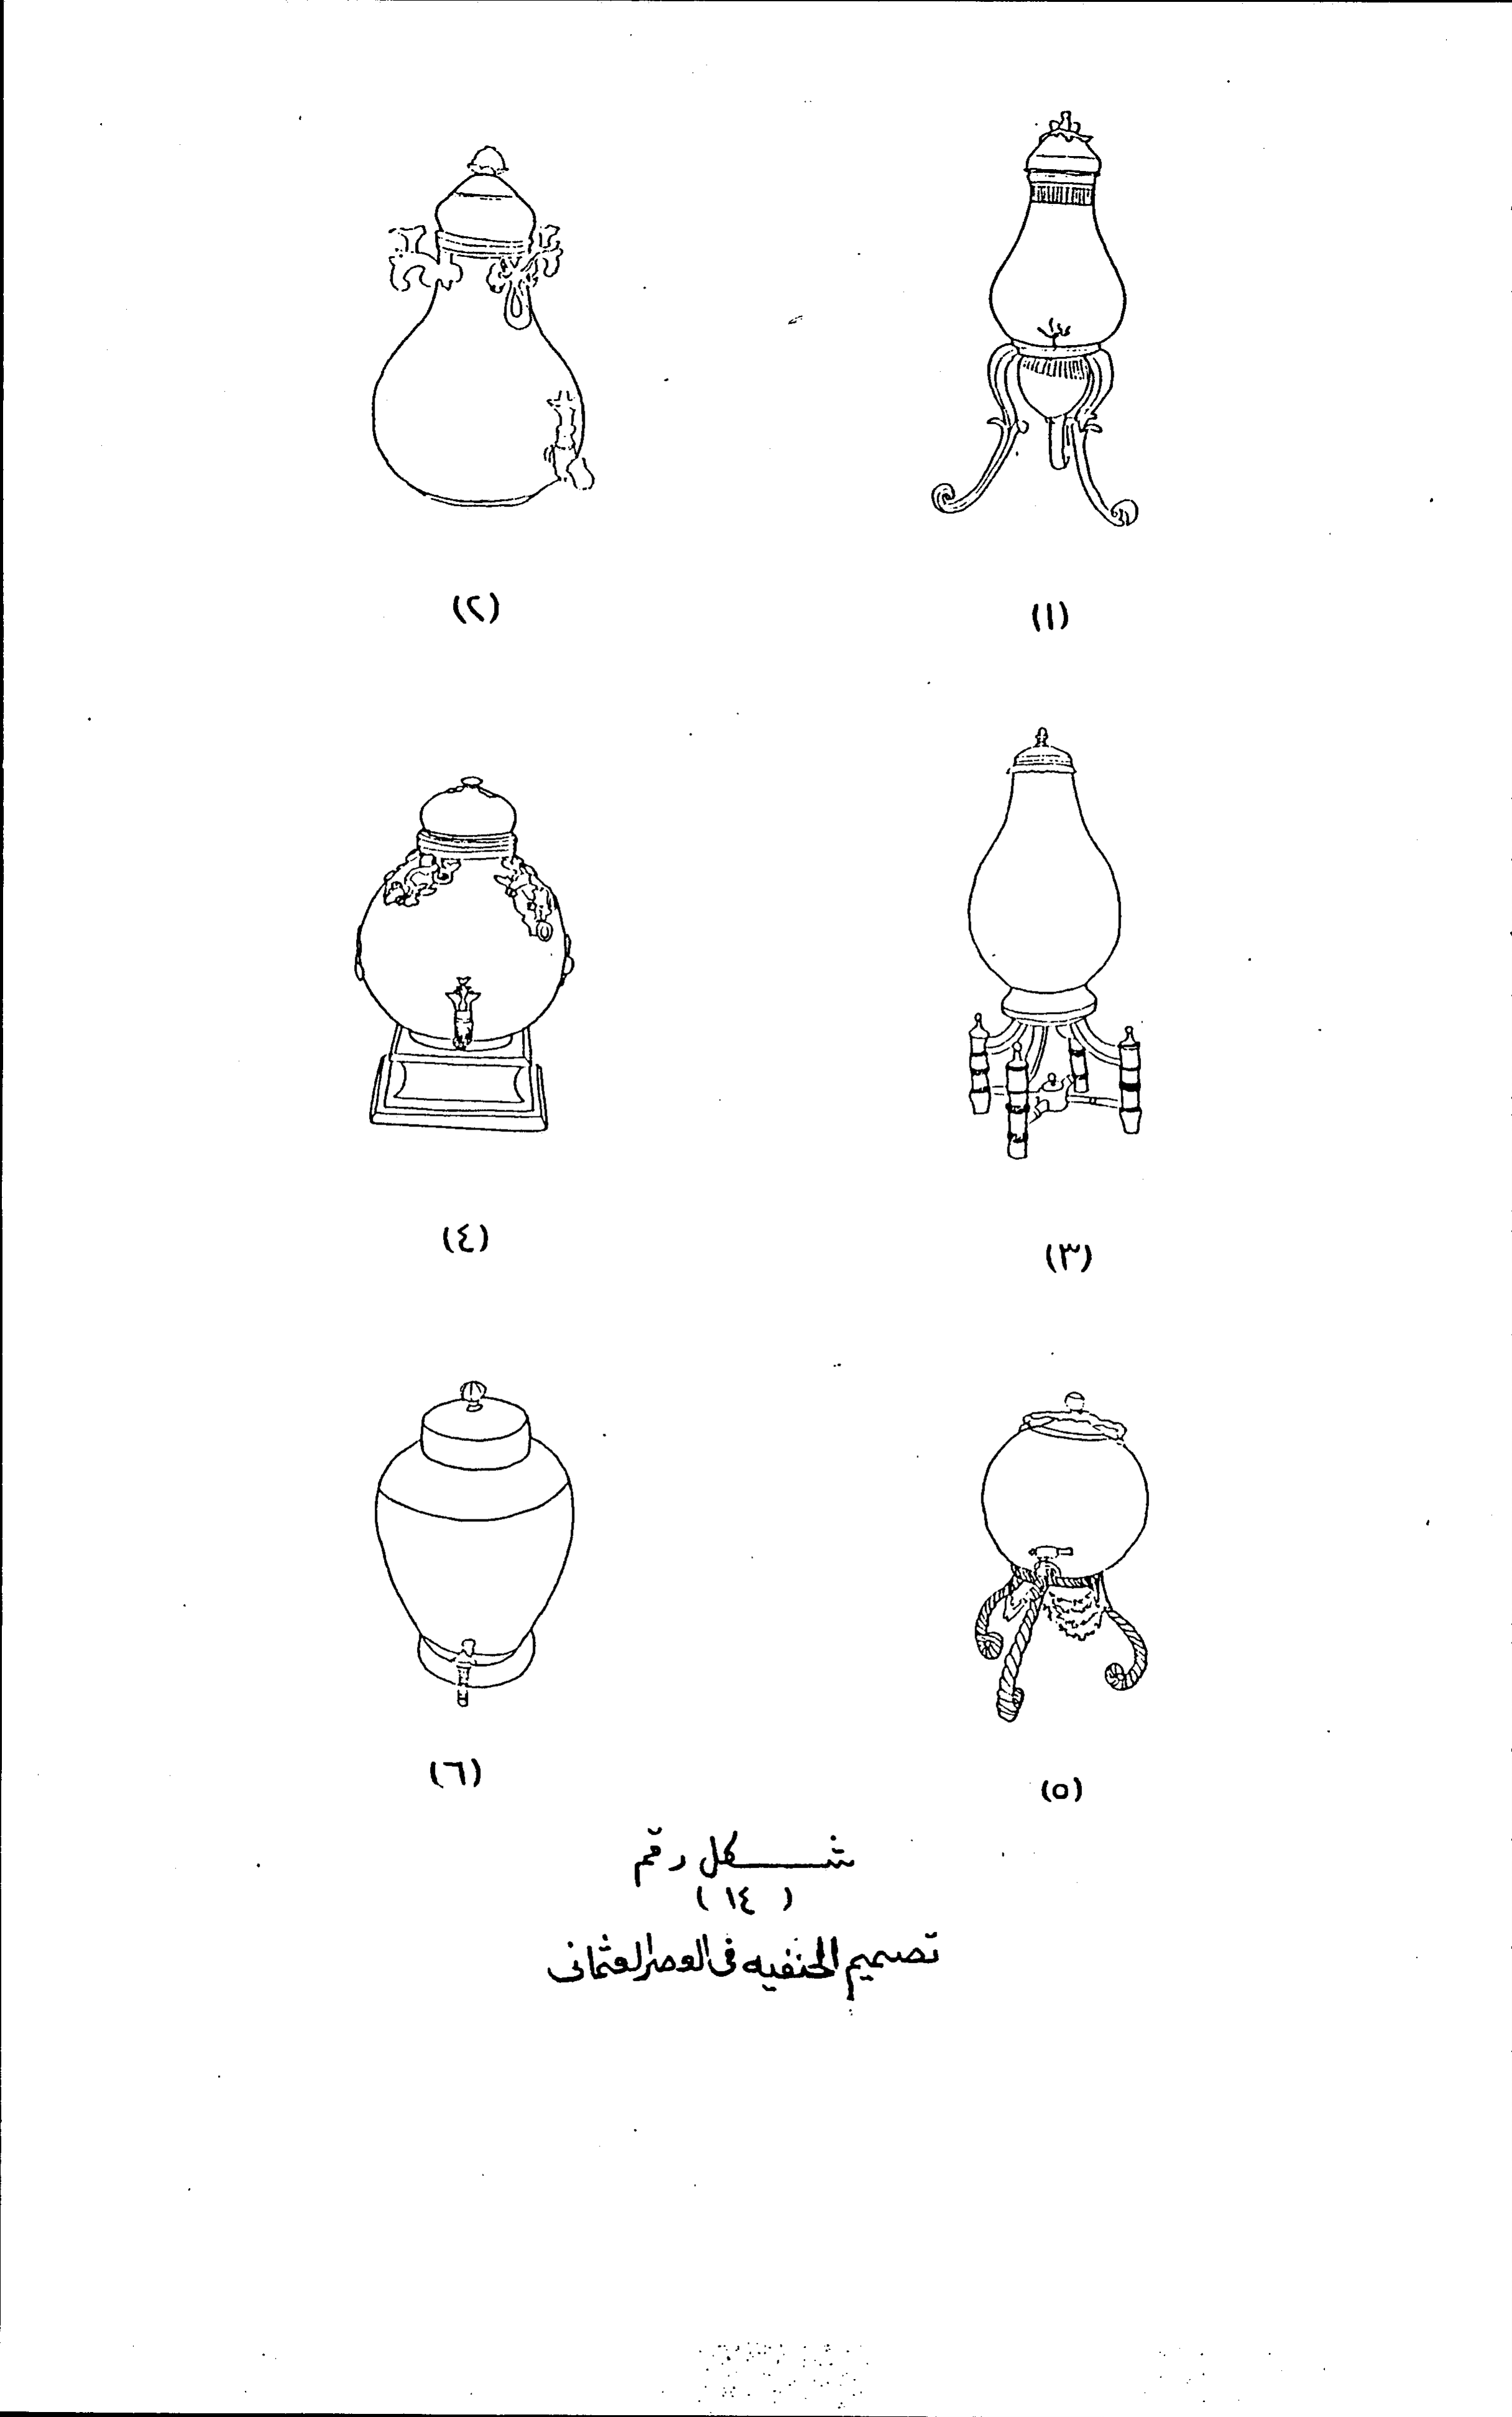 (١)
(٢)
(٣)
(٤)
(٥)
(٦)
شكل رقم
( ١٤ )
تصميم الحنفيه فى العصر العثمانى